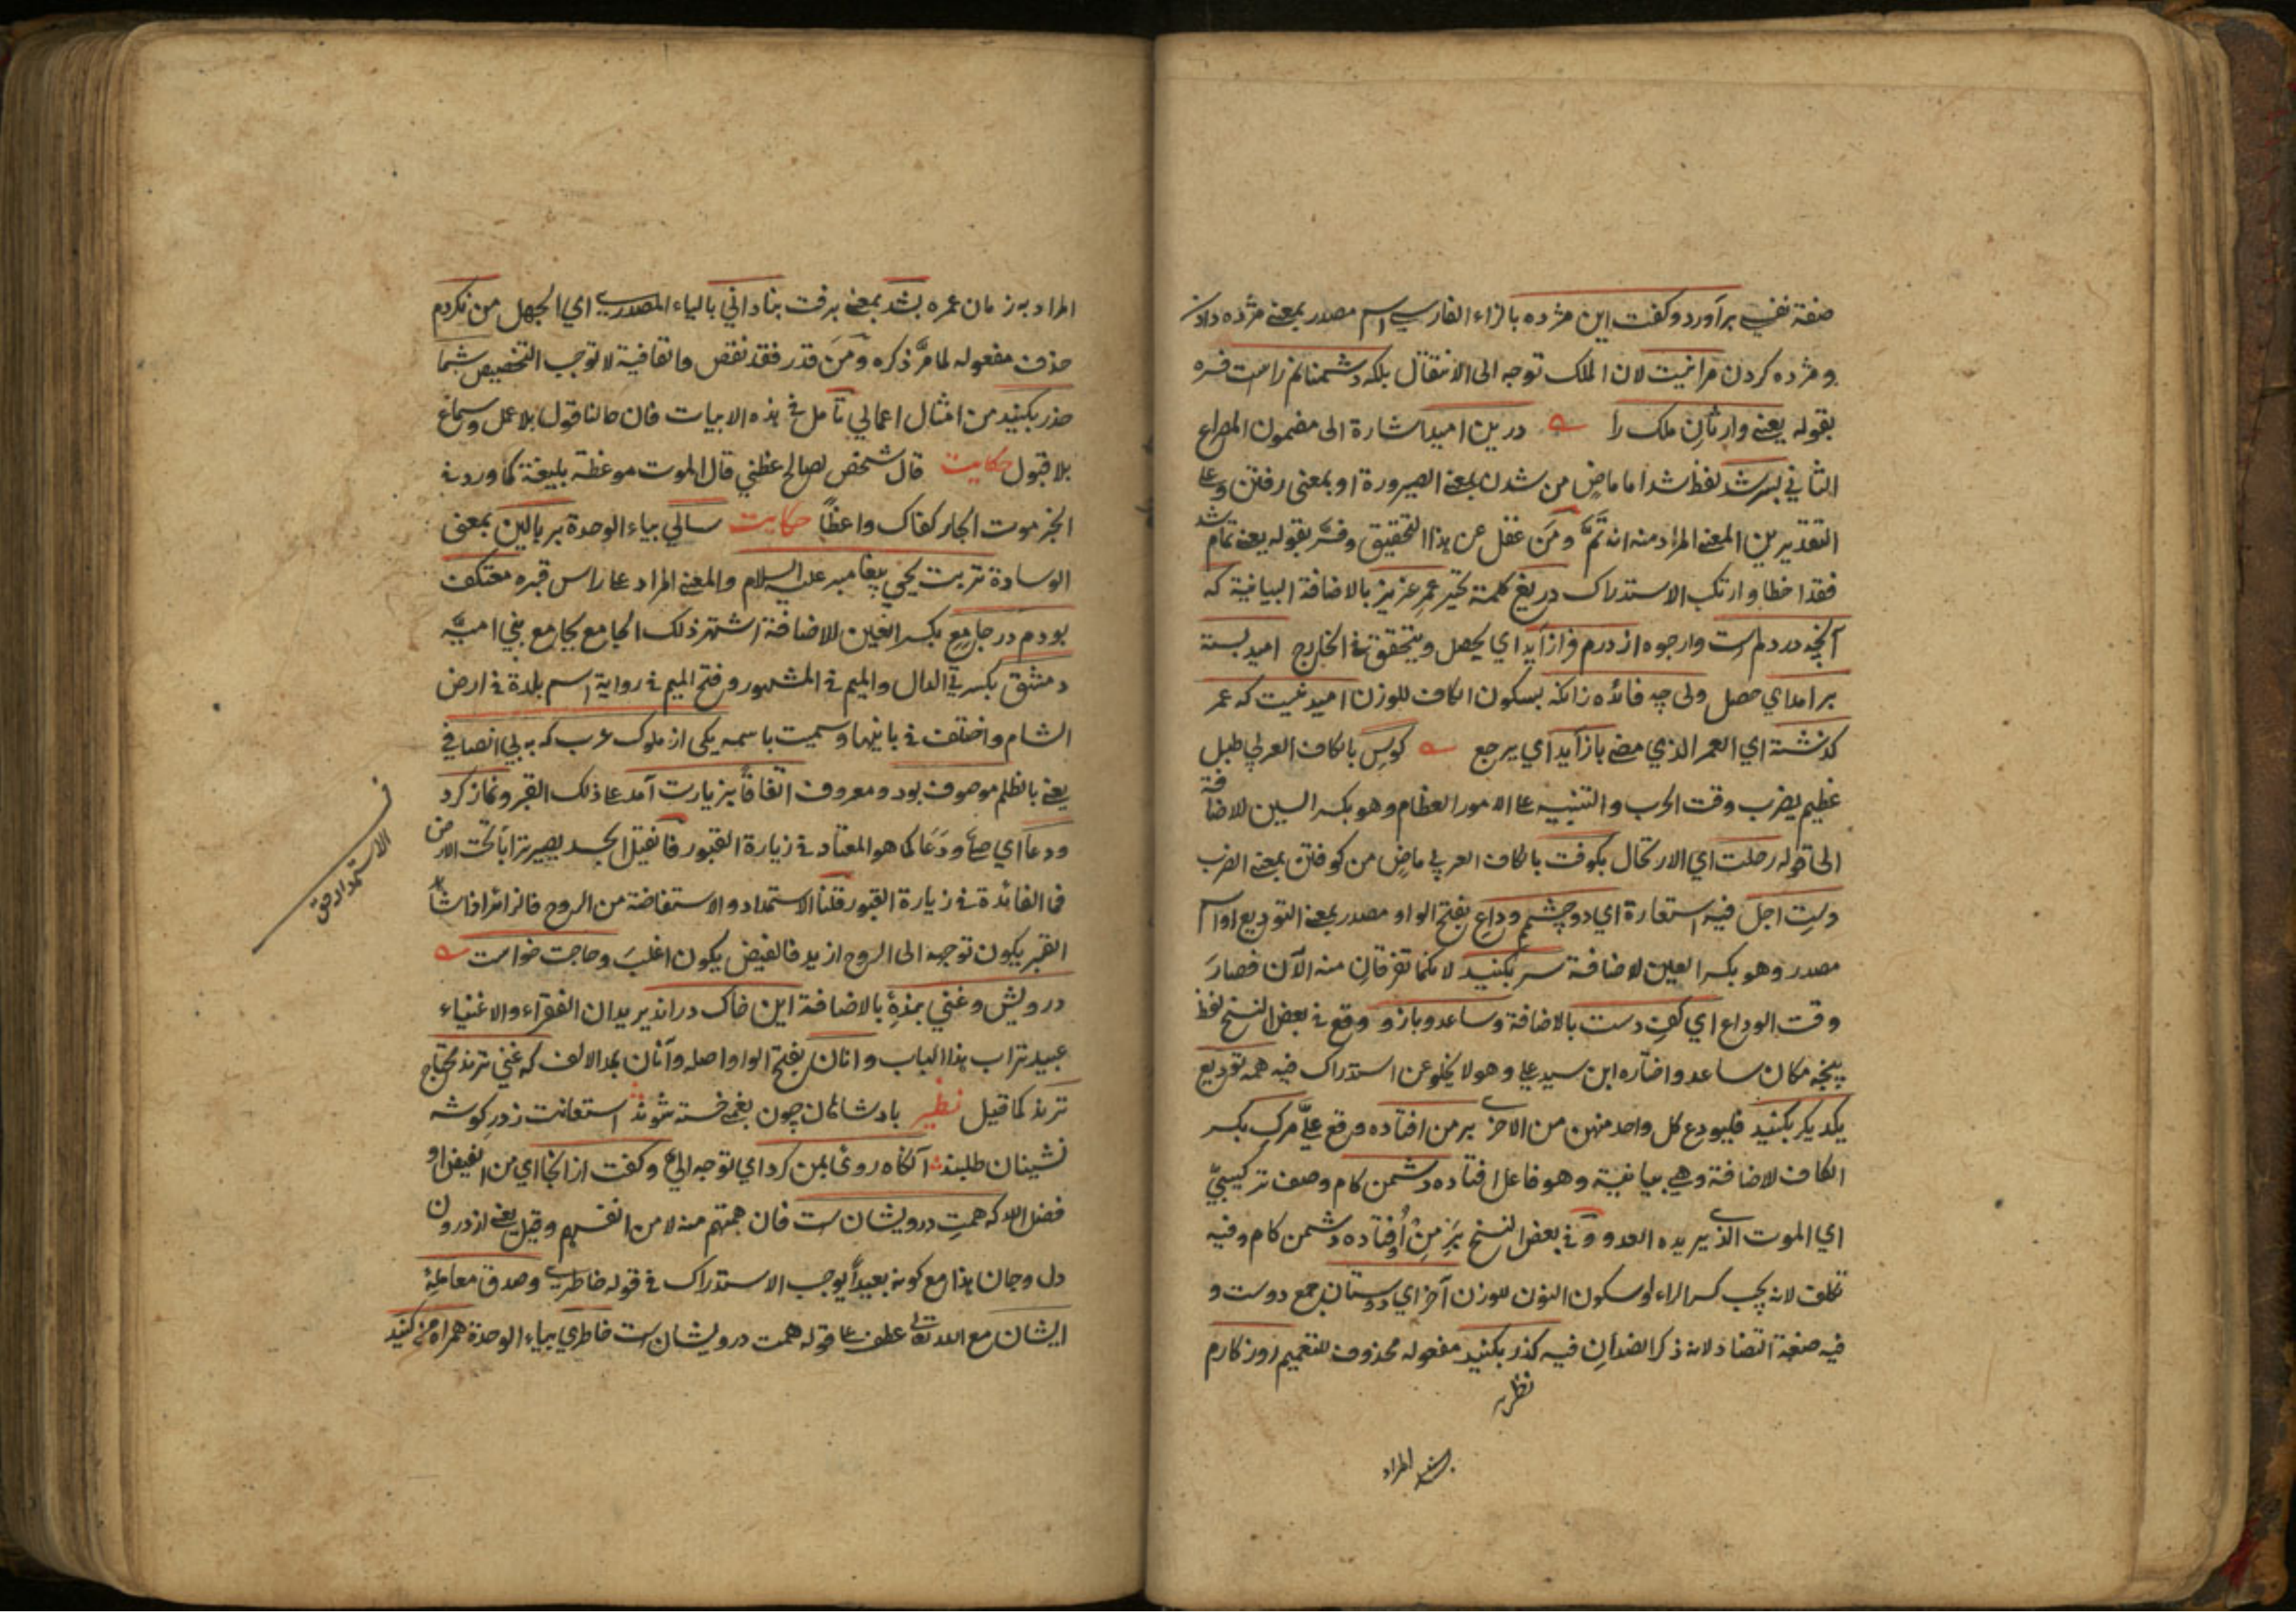 صفة نفسي برآورد وكفت اين مژده بالزاء الفارسي اسم مصدر بمعنى مژده دادن
ومژده كردن مرا نيست لان الملك توجه الى الانتقال بلكه دشمنانم راست فسره
بقوله يعنى وارثان ملك را درين اميد اشارة الى مضمون المصراع
الثاني بسر شد لفظ شد اما ماض من شدن بمعنى الصيرورة او بمعنى رفتن وعلى
التقديرين المعنى المراد منه انه تمّ ومَن غفل عن هذا التحقيق وفسّر بقوله يعنى تمام شد
فقد اخطا وارتكب الاستدراك دريغ كلمة تحير عمر عزيز بالاضافة البيانية كه
آنچه در دلم است وارجوه از درم فرازآيد اي يحصل ويتحقق في الخارج اميد بسته
برامد اي حصل ولى چه فائده زانكه بسكون الكاف للوزن اميد نيست كه عمر
كذشته اي العمر الذي مضى بازآيد اي يرجع كوس بالكاف العربي طبل
عظيم يضرب وقت الحرب والتنبيه على الامور العظام وهو بكسر السين للاضافة
الى قوله رحلت اي الارتحال بكوفت بالكاف العربي ماض من كوفتن بمعنى الضرب
دست اجل فيه استعارة اي دو چشم وداع بفتح الواو مصدر بمعنى التوديع او اسم
مصدر وهو بكسر العين للاضافة سر بكنيد لانكما تفرقان منه الآن فصار
وقت الوداع اي كف دست بالاضافة وساعد وبازو ووقع في بعض النسخ لفظ
پنجه مكان ساعد واختاره ابن سيد على وهو لا يخلو عن استدراك فيه همه توديع
يكديكر بكنيد فليودع كل واحد منهن من الاخرى بر من افتاده وقع علىّ مرك بكسر
الكاف للاضافة وهي بيانية وهو فاعل افتاده دشمن كام وصف تركيبيّ
اي الموت الذي يريده العدو وفي بعض النسخ بَر مِنْ اُوفتاده دشمن كام وفيه
تكلف لانه يجب كسر الراء وسكون النون للوزن آخر اي دوستان جمع دوست و
فيه صنعة التضاد لانه ذكر الضدان فيه كذر بكنيد مفعوله محذوف للتعميم روزكارم
المراد به زمان عمره بشد بمعنى برفت بناداني بالياء المصدرية اي الجهل من نكردم
حذف مفعوله لما مرّ ذكره ومَن قدر فقد نقص والقافية لا توجب التخصيص شما
حذر بكنيد من امثال اعمالي تأمل في هذه الابيات فان حالنا قول بلا عمل وسماع
بلا قبول حكايت قال شخص لصالح عظني قال الموت موعظة بليغة كما ورد في
الخبر موت الجار كفاك واعظاً حكايت سالي بياء الوحدة بر بالين بمعنى
الوسادة تربت يحيى پيغامبر عليه السلام والمعنى المراد على راس قبره معتكف
بودم در جامع بكسر العين للاضافة اشتهر ذلك الجامع بجامع بني اميّة
دمشق بكسرتي الدال والميم في المشهور وفتح الميم في رواية اسم بلدة في ارض
الشام واختلف في بانيها وسميت باسمه يكى از ملوك عرب كه به بي انصافي
يعنى بالظلم موصوف بود ومعروف اتفاقاً بزيارت آمد على ذلك القبر ونماز كرد
ودعا اي صلى ودَعَا كما هو المعتاد في زيارة القبور فان قيل الجسد يصير تراباً تحت الارض
فما الفائدة في زيارة القبور قلنا الاستمداد والاستفاضة من الروح فالزائر اذا شاهد
القبر يكون توجهه الى الروح ازيد فالفيض يكون اغلبَ وحاجت خواست
درويش وغني بندهٔ بالاضافة اين خاك درند يريد ان الفقراء والاغنياء
عبيد تراب هذا الباب وانان بفتح الواو اصله وآنان بمد الالف كه غني ترند محتاج
ترند كما قيل نظير پادشاهان چون بغمي خسته شوند استعانت ز در كوشه
نشينان طلبند آنكاه روى بمن كرد اي توجه الىّ وكفت از انجا اي من الفيض او
فضل الله كه همت درويشان است فان همتهم منه لا من انفسهم وقيل يعنى از درون
دل وجان هذا مع كونه بعيداً يوجب الاستدراك في قوله خاطري وصدق معاملهٔ
ايشان مع الله تعالى عطف على قوله همت درويشان است خاطري بياء الوحدة همراه من كنيد
الاستمداد من
المراد